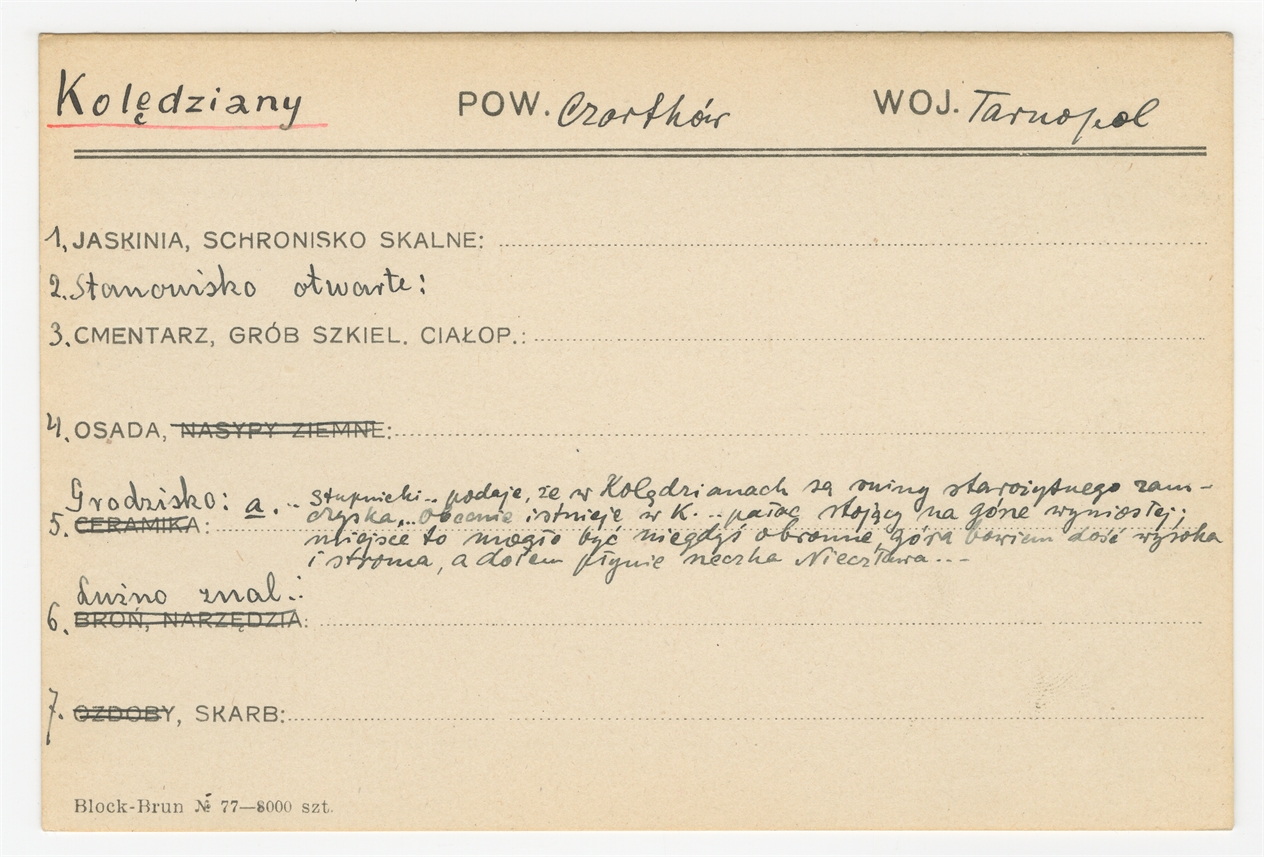 Kolędziany POW. Czortków WOJ. Tarnopol
1. JASKINIA, SCHRONISKO SKALNE:
2. Stanowisko otwarte:
3. CMENTARZ, GRÓB SZKIEL. CIAŁOP.:
4. OSADA, NASYPY ZIEMNE:
Grodzisko: a. .. Stupnicki .. podaje, że w Kolędzianach są ruiny starożytnego zam-
5. CERAMIKA: czyska,.. Obecnie istnieje w K. .. pałac stojący na górze wyniosłej;
miejsce to mogło być niegdyś obronne, góra bowiem dość wysoka
i stroma, a dołem płynie rzeczka Nieczława ...
Luźno znal.:
6. BROŃ, NARZĘDZIA:
7. OZDOBY, SKARB:
Block-Brun № 77—8000 szt.